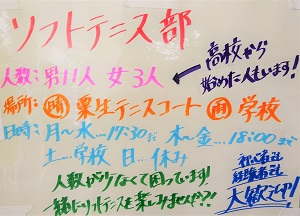 ソフトテニス部
人数:男11人 女3人
高校から
始めた人もいます!
場所:晴 粟生テニスコート 雨 学校
日時:月〜水…17:30まで 木〜金…18:00まで
土…学校 日…休み
人数が少なくて困っています!
一緒にソフトテニスを楽しみませんか?!
初心者も
経験者も
大歓迎!